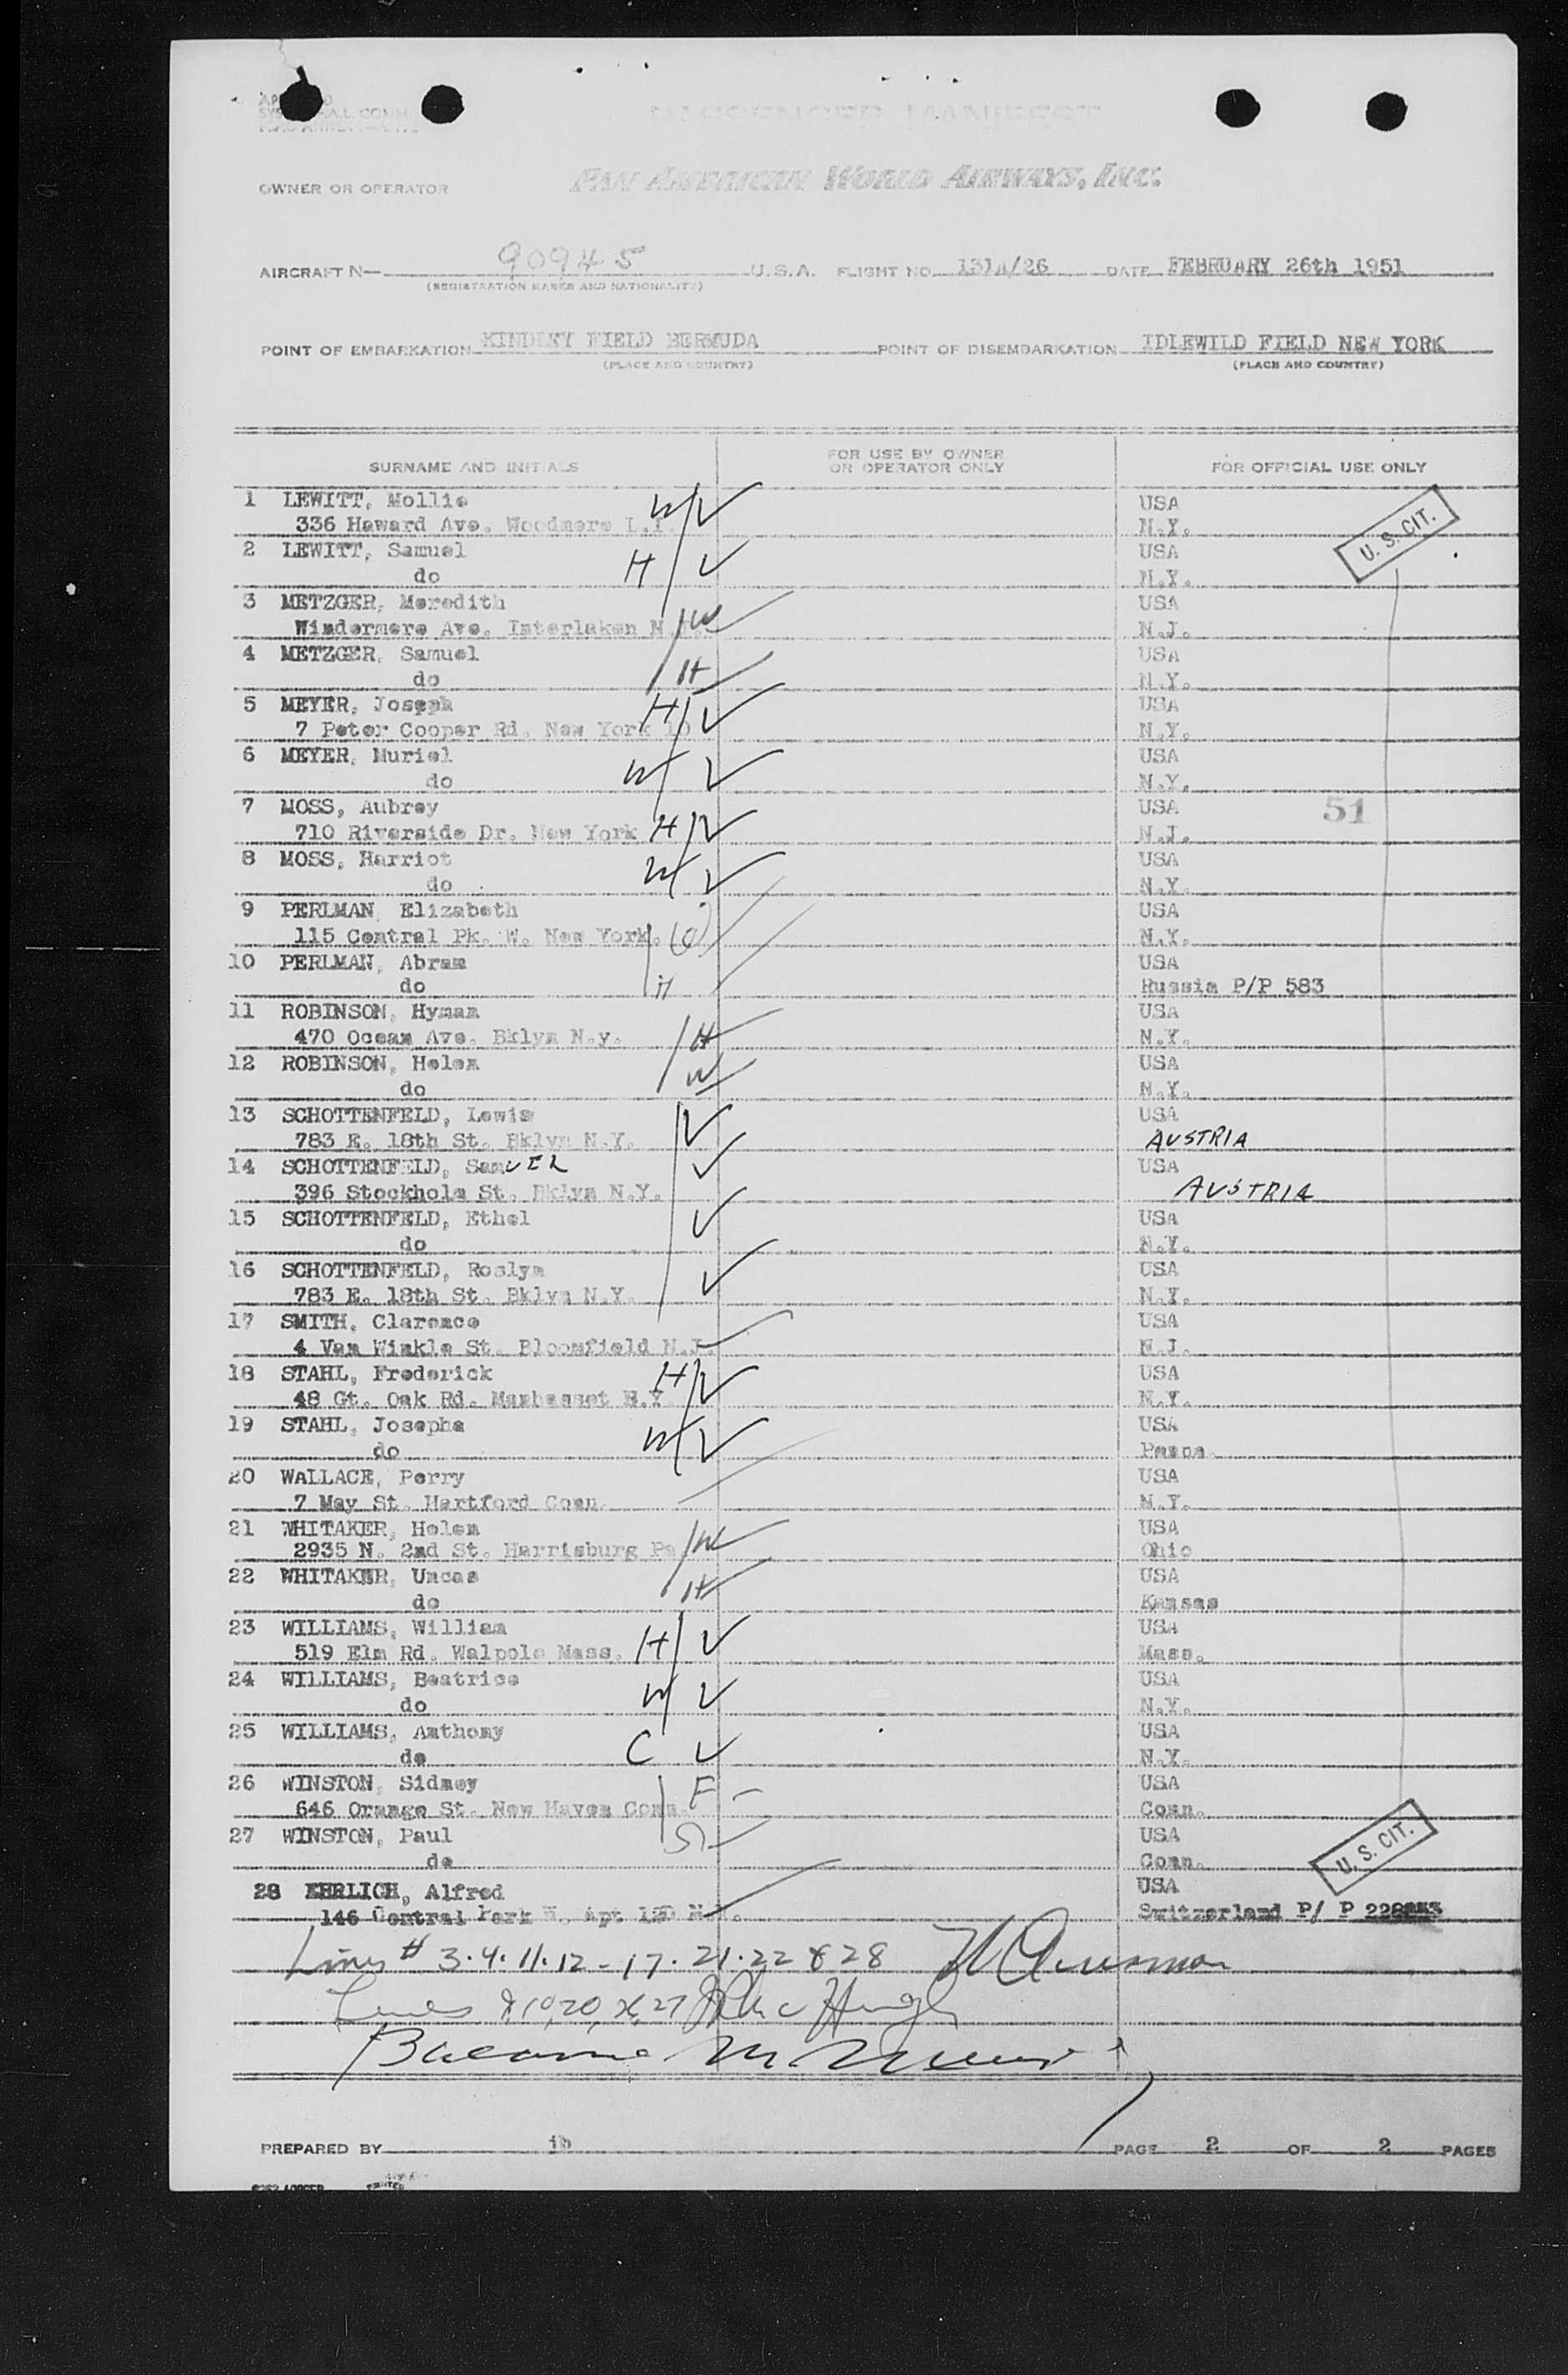 PASSENGER MANIFEST
OWNER OR OPERATOR PAN AMERICAN WORLD AIRWAYS, INC.
AIRCRAFT N— 90945 U.S.A. FLIGHT NO. 131A/26 DATE FEBRUARY 26th 1951
(REGISTRATION MARKS AND NATIONALITY)
POINT OF EMBARKATION KINDLEY FIELD BERMUDA POINT OF DISEMBARKATION IDLEWILD FIELD NEW YORK
(PLACE AND COUNTRY) (PLACE AND COUNTRY)
SURNAME AND INITIALS FOR USE BY OWNER OR OPERATOR ONLY FOR OFFICIAL USE ONLY
1 LEWITT, Mollie W USA
336 Haward Ave. Woodmere L.I. N.Y.
U. S. CIT.
2 LEWITT, Samuel USA
do H N.Y.
3 METZGER, Meredith USA
Windermere Ave. Interlaken N.J. W N.J.
4 METZGER, Samuel USA
do H N.Y.
5 MEYER, Joseph H USA
7 Peter Cooper Rd. New York 10 N.Y.
6 MEYER, Muriel USA
do W N.Y.
7 MOSS, Aubrey USA 51
710 Riverside Dr. New York H N.J.
8 MOSS, Harriot USA
do W N.Y.
9 PERLMAN, Elizabeth USA
115 Central Pk. W. New York. N.Y.
10 PERLMAN, Abram USA
do H Russia P/P 583
11 ROBINSON, Hyman USA
470 Ocean Ave. Bklyn N.y. H N.Y.
12 ROBINSON, Helen USA
do W N.Y.
13 SCHOTTENFELD, Lewis USA
783 E. 18th St. Bklyn N.Y. AUSTRIA
14 SCHOTTENFELD, SamUEL USA
396 Stockholm St. Bklyn N.Y. AUSTRIA
15 SCHOTTENFELD, Ethel USA
do N.Y.
16 SCHOTTENFELD, Roslyn USA
783 E. 18th St. Bklyn N.Y. N.Y.
17 SMITH, Clarence USA
4 Van Winkle St. Bloomfield N.J. N.J.
18 STAHL, Frederick H USA
48 Gt. Oak Rd. Manhasset N.Y. N.Y.
19 STAHL, Josepha USA
do W Penna.
20 WALLACE, Perry USA
7 May St. Hartford Conn. N.Y.
21 WHITAKER, Helen USA
2935 N. 2nd St. Harrisburg Pa. W Ohio
22 WHITAKER, Uncas USA
do H Kansas
23 WILLIAMS, William USA
519 Elm Rd. Walpole Mass. H Mass.
24 WILLIAMS, Beatrice USA
do W N.Y.
25 WILLIAMS, Anthony USA
do C N.Y.
26 WINSTON, Sidney F USA
646 Orange St. New Haven Conn. Conn.
27 WINSTON, Paul USA
do S Conn.
U. S. CIT.
28 EHRLICH, Alfred USA
146 Central Park W. Apt 12D N.Y. Switzerland P/ P
Lines # 3.4.11.12-17.21.22 & 28
Lines
PREPARED BY ib PAGE 2 OF 2 PAGES